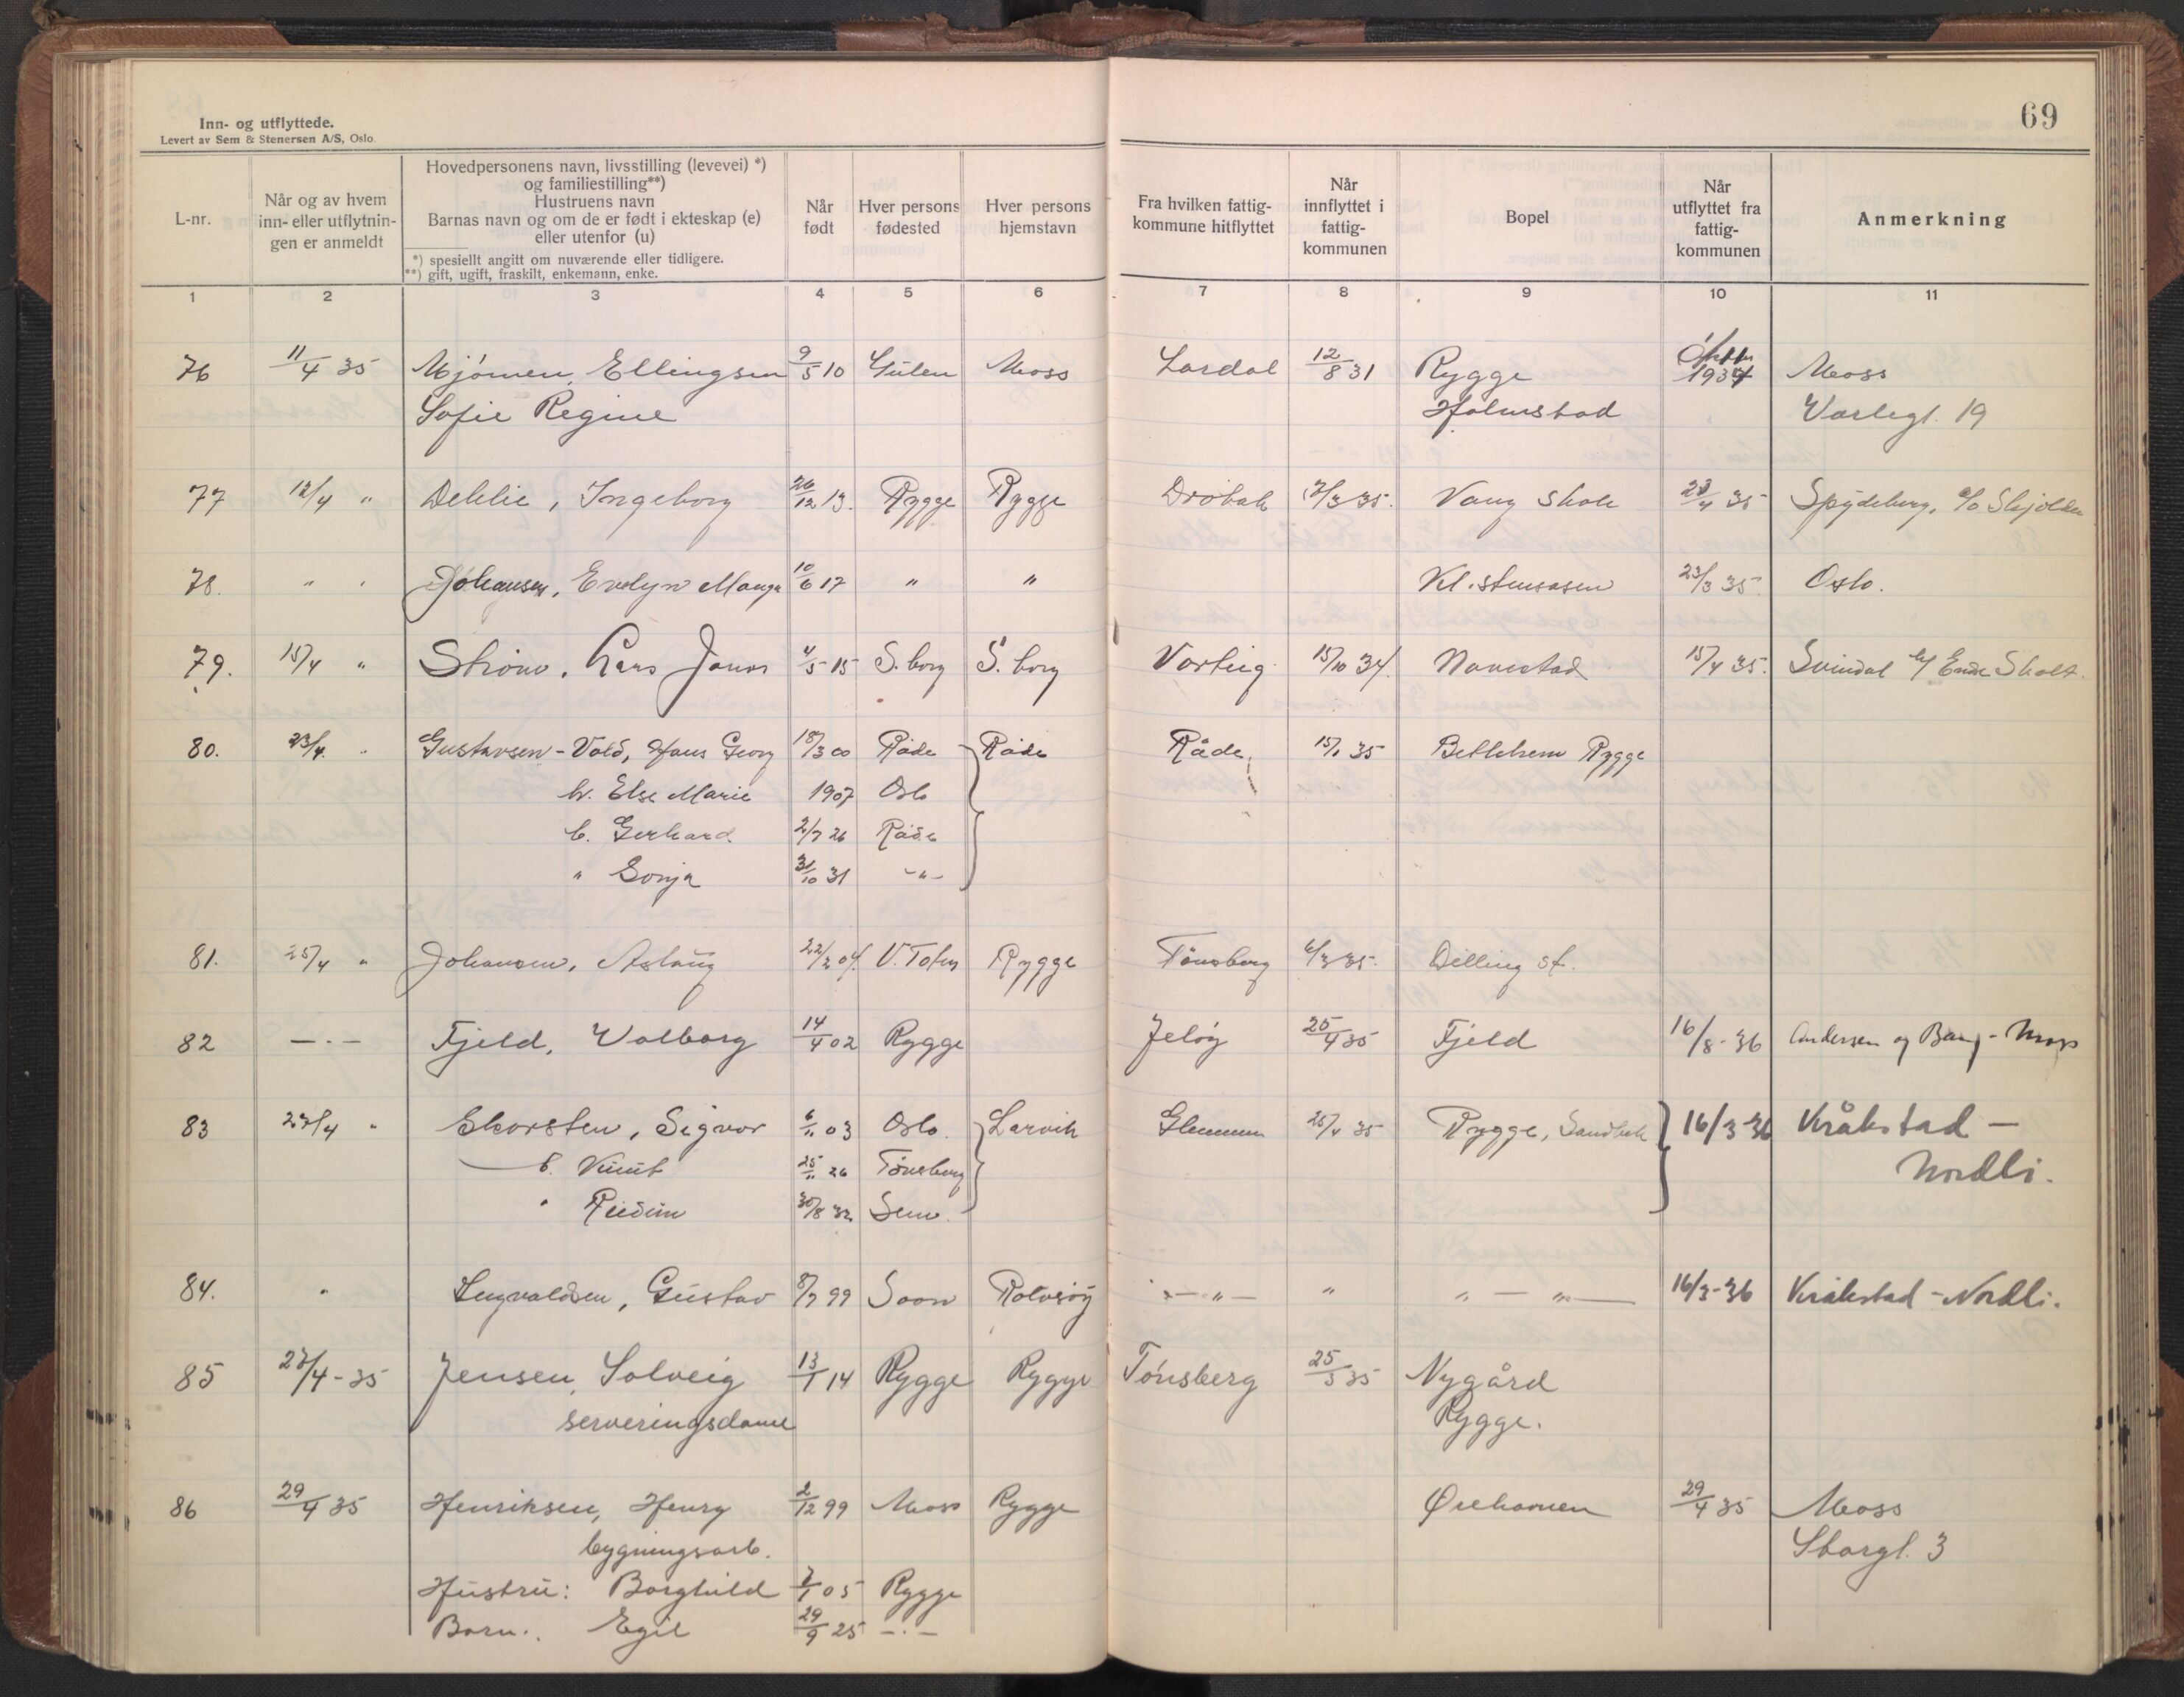 69
Inn- og utflyttede.
Levert av Sem & Stenersen A/S, Oslo.
L-nr.
Når og av hvem
inn- eller utflytnin-
gen er anmeldt
Hovedpersonens navn, livsstilling (levevei) *)
og familiestilling**)
Hustruens navn
Barnas navn og om de er født i ekteskap (e)
eller utenfor (u)
*) spesiellt angitt om nuværende eller tidligere.
**) gift, ugift, fraskilt, enkemann, enke.
Når
født
Hver persons
fødested
Hver persons
hjemstavn
Fra hvilken fattig-
kommune hitflyttet
Når
innflyttet i
fattig-
kommunen
Bopel
Når
utflyttet fra
fattig-
kommunen
Anmerkning
1 2 3 4 5 6 7 8 9 10 11
76 11/4 35 Mjømen, Ellingsen 9/5 10 Gulen Moss Lardal 12/8 31 Rygge 1937 Moss
Sofie Regine Holmstad Varlegt. 19
77 12/4 " Dehlie, Ingeborg 26/12 13. Rygge Rygge Drøbak 35. Vang Skole 23/4 35 Spydeberg, c/o
78. " " Johansen, Evelyn 10/6 17 " " 23/3 35. Oslo.
79. 15/4 " Strøm, Lars Jonas 4/5 15 S. borg S. borg Varteig 15/10 34. Navestad 15/4 35. Svindal
80. 23/4. " Gustavsen-Vold, Hans Georg 18/3 00 Råde Råde Råde, 15/1 35 Betlehem Rygge
h. Else Marie 1907 Oslo
b. Gerhard 2/7 26 Råde
" Sonja 31/10 31 -"-
81. 25/4 " Johansen, Aslaug 22/2 04. V. Toten Rygge Tønsberg 6/3 35. Dilling st.
82 —·— Fjeld, Valborg 14/4 02 Rygge Jeløy 25/4 35 Fjeld 16/8-36 Andersen og Bang - Moss
83 27/4 " Skorsten, Sigvor 6/11 03 Oslo. Larvik Glemmen 25/4 35 Rygge, Sandbek 16/3-36 Kråkstad —
b. Knut 25/11 26 Tønsberg Nordli.
" Reidun 30/8 32 Sem.
84. " Gustav 8/7 99 Soon Rolvsøy —"— " " — "— 16/3-36 Kråkstad - Nordli.
85 27/4-35 Jensen, Solveig 13/1 14 Rygge Rygge Tønsberg 25/3 35 Nygård
serveringsdame Rygge.
86 29/4 35 Henriksen, Henry 2/12 99 Moss Rygge Ørehavnen 29/4 35 Moss
bygningsarb. Storgt. 3
Hustru: Borghild 7/1 05 Rygge
Barn: Egil 29/9 25 —·—